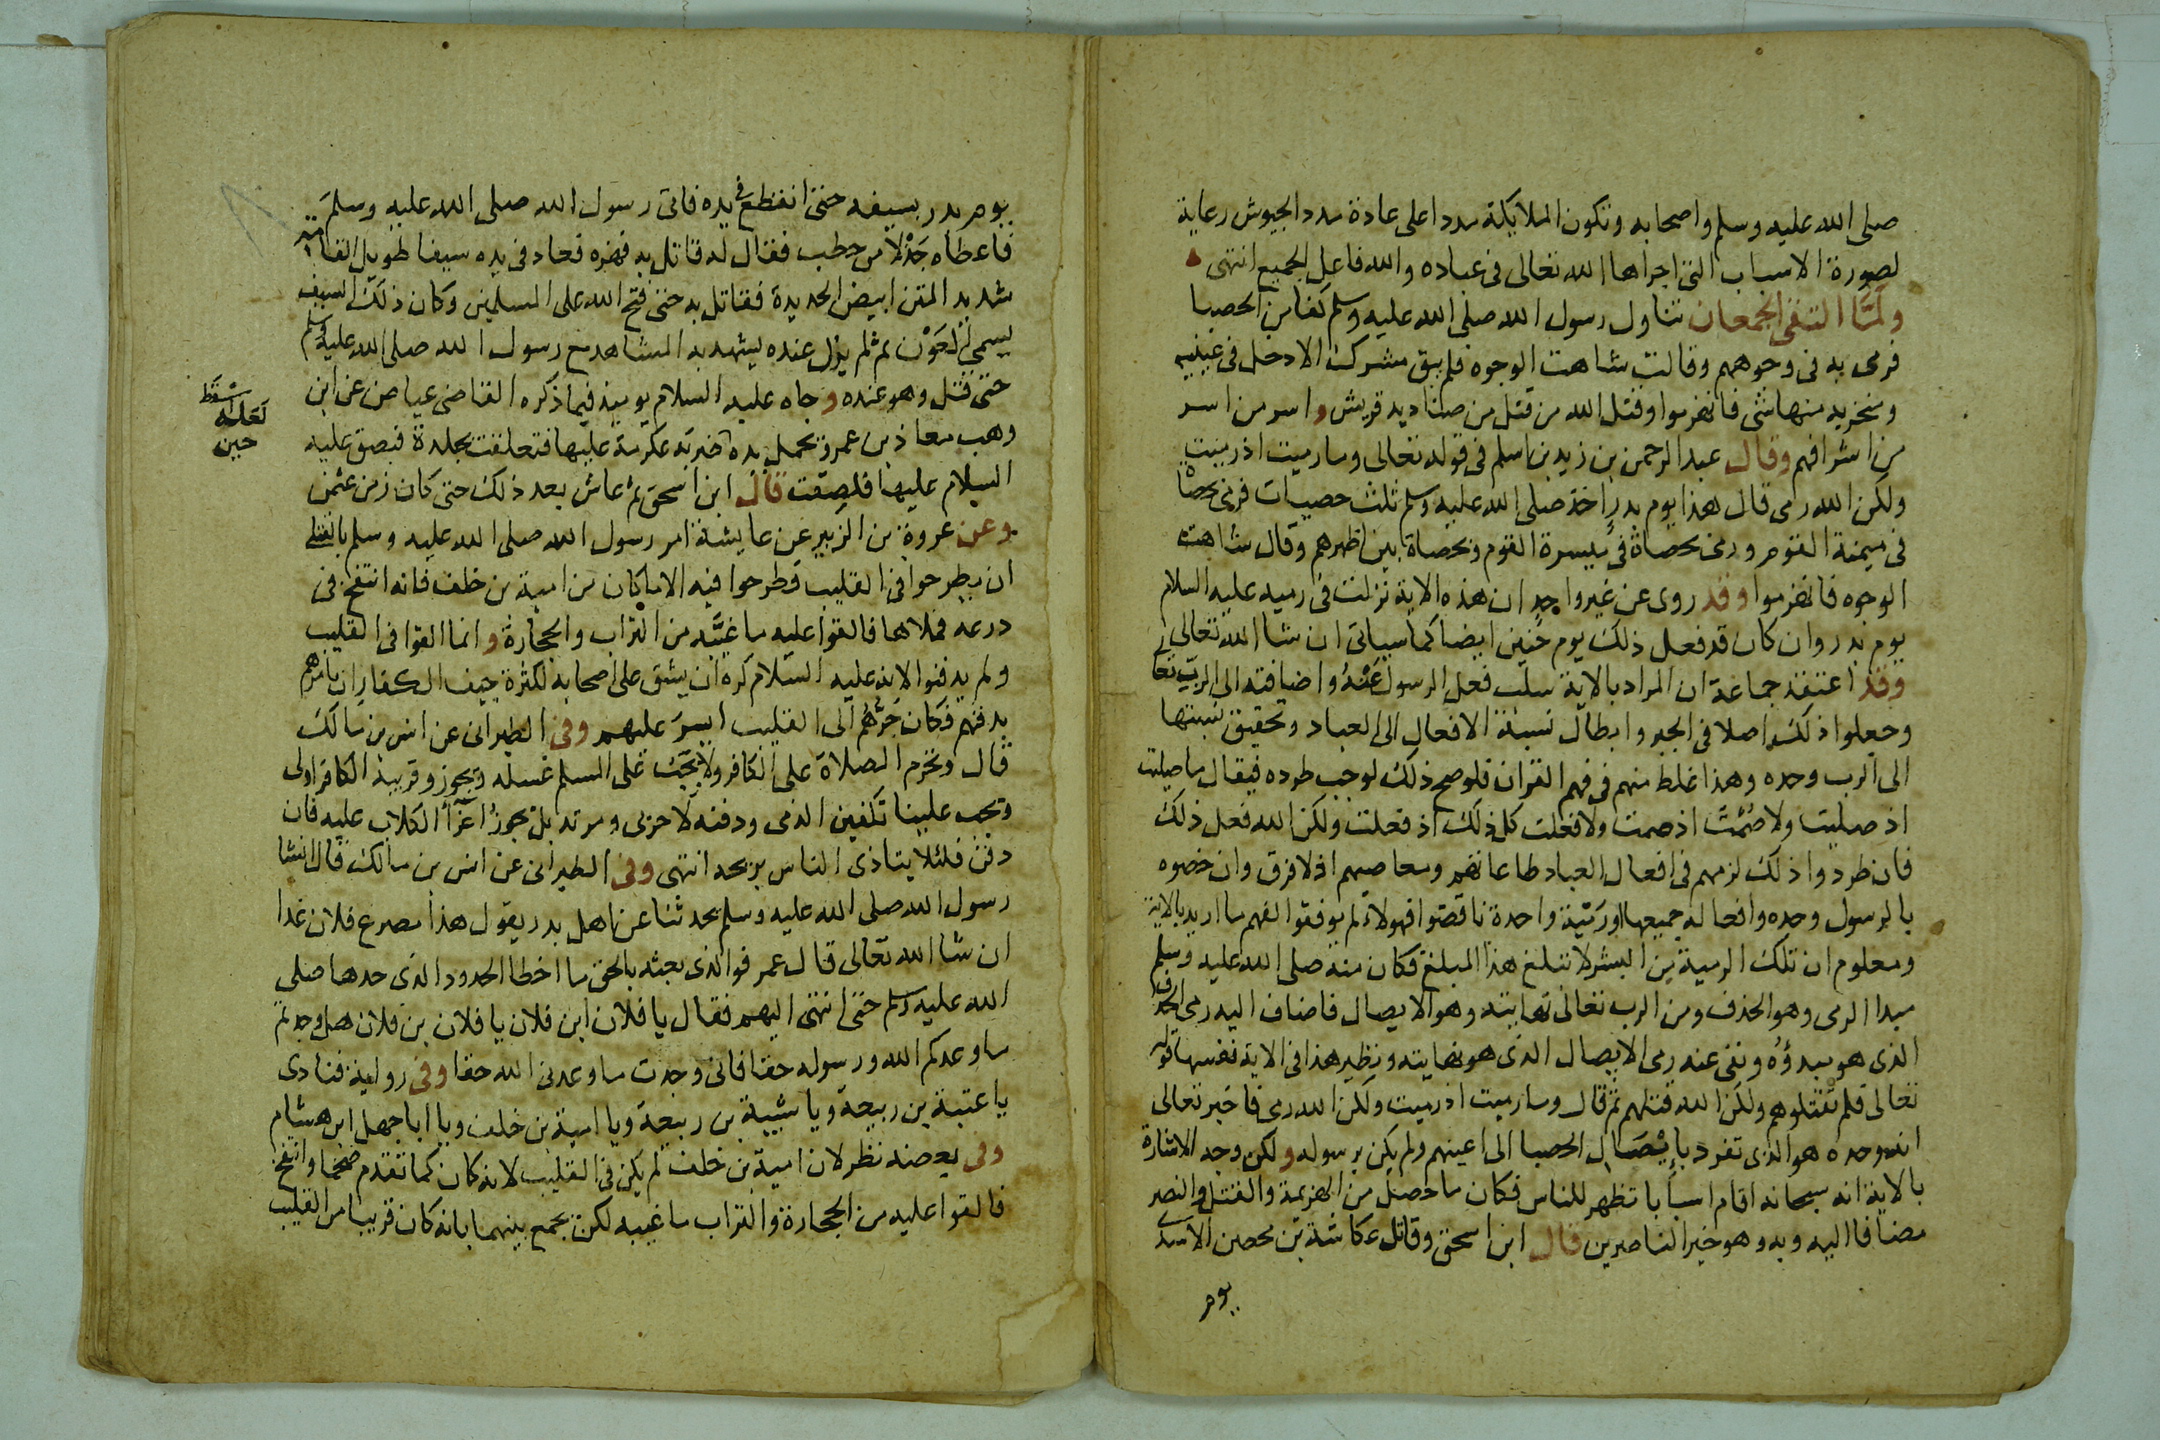 صلى الله عليه وسلم واصحابه وتكون الملايكة مددا على عادة مدد الجيوش رعاية
لصورة الاسباب التى اجراها الله تعالى فى عباده والله فاعل الجميع انتهى
ولما التقى الجمعان تناول رسول الله صلى الله عليه وسلم كفا من الحصبا
فرمى به فى وجوههم وقالت شاهت الوجوه فلم يبق مشرك الا دخل فى عينيه
ومنخريه منها شى فانهزموا وقتل الله من قتل من صناديد قريش واسر من اسر
من اشرافهم وقال عبد الرحمن بن زيد بن اسلم فى قوله تعالى وما رميت اذ رميت
ولكن الله رمى قال هذا يوم بدر اخذ صلى الله عليه وسلم ثلث حصيات فرمى بحصاة
فى ميمنة القوم ورمى بحصاة فى ميسرة القوم وبحصاة بين اظهرهم وقال شاهت
الوجوه فانهزموا وقد روى عن غير واحد ان هذه الاية نزلت فى رميه عليه السلام
يوم بدر وان كان قد فعل ذلك يوم حنين ايضا كما سياتى ان شا الله تعالى
وقد اعتقد جماعة ان المراد بالاية سلب فعل الرسول عنه واضافته الى الرب تعا
وجعلوا ذلك اصلا فى الجبر وابطال نسبة الافعال الى العباد وتحقيق نسبتها
الى الرب وحده وهذا غلط منهم فى فهم القران فلو صح ذلك لوجب طرده فيقال ما صليت
اذ صليت ولا صُمْتَ اذ صمت ولا فعلت كل ذلك اذ فعلت ولكن الله فعل ذلك
فان طردوا ذلك لزمهم فى افعال العباد طاعاتهم ومعاصيهم اذ لا فرق وان خصوه
بالرسول وحده وافعاله جميعها او رميته واحدة ناقضوا فهولاء لم يوفقوا لفهم ما اريد بالاية
ومعلوم ان تلك الرمية من البشر لا تبلغ هذا المبلغ فكان منه صلى الله عليه وسلم
مبدا الرمى وهو الحذف ومن الرب تعالى نهايته وهو الايصال فاضاف اليه رمى الحذف
الذى هو مبدؤه ونفى عنه رمى الايصال الذى هو نهايته ونظير هذا فى الاية نفسها قوله
تعالى فلم تقتلوهم ولكن الله قتلهم ثم قال وما رميت اذ رميت ولكن الله رمى فاخبر تعالى
انه وحده هو الذى تفرد بايصال الحصبا الى اعينهم ولم يكن برسوله ولكن وجه الاشارة
بالاية انه سبحانه اقام اسبابا تظهر للناس فكان ما حصل من الهزيمة والقتل والنصر
مضافا اليه وبه وهو خير الناصرين قال ابن اسحق وقاتل عكاشة بن محصن الاسدى
يوم
يوم بدر بسيفه حتى انقطع فى يده فاتى رسول الله صلى الله عليه وسلم
فاعطاه جَذْلا من حطب فقال له قاتل به فهزه فعاد فى يده سيفا طويل القامة
شديد المتن ابيض الحديدة فقاتل به حتى فتح الله على المسلمين وكان ذلك السيف
يسمى العَوْن ثم لم يزل عنده يشهد به المشاهد مع رسول الله صلى الله عليه وسلم
حتى قتل وهو عنده وجاه عليه السلام يوميذ فيما ذكره القاضى عياض عن ابن
وهب معاذ بن عمرو يحمل يده ضربه عكرمة عليها فتعلقت بجلدة فبصق عليه
السلام عليها فلصقت قال ابن اسحق ثم عاش بعد ذلك حتى كان زمن عثمن
وعن عروة بن الزبير عن عايشة امر رسول الله صلى الله عليه وسلم بالقتلى
ان يطرحوا فى القليب فطرحوا فيه الا ما كان من امية بن خلف فانه انتفخ فى
درعه فملاها فالقوا عليه ما غيَّبه من التراب والحجارة وانما القوا فى القليب
ولم يدفنوا لانه عليه السلام كره ان يشق على اصحابه لكثرة جيف الكفار ان يامرهم
بدفنهم فكان جَرُّهُم الى القليب ايسر عليهم وفى الطبرانى عن انس بن مالك
قال وتحرم الصلاة على الكافر ولا يجب على المسلم غسله ويجوز وقريبه الكافر اولى
وتجب علينا تكفين الذمى ودفنه لا حربى ومرتد بل يجوز اغرآ الكلاب عليه فان
دفن فلئلا يتاذى الناس بريحه انتهى وفى الطبرانى عن انس بن مالك قال انشا
رسول الله صلى الله عليه وسلم يحدثنا عن اهل بدر يقول هذا مصرع فلان غدا
ان شا الله تعالى قال عمر فوالذى بعثه بالحق ما اخطا الحدود الذى حدها صلى
الله عليه وسلم حتى انتهى اليهم فقال يا فلان ابن فلان يا فلان بن فلان هل وجدتم
ما وعدكم الله ورسوله حقا فانى وجدت ما وعدنى الله حقا وفى رواية فنادى
يا عتبة بن ربيعة ويا شيبة بن ربيعة ويا امية بن خلف ويا ابا جهل ابن هشام
وفى بعضه نظر لان امية بن خلف لم يكن فى القليب لانه كان كما تقدم ضخما وانتفخ
فالقوا عليه من الحجارة والتراب ما غيبه لكن يجمع بينهما بانه كان قريبا من القليب
سقط
لعله
حين